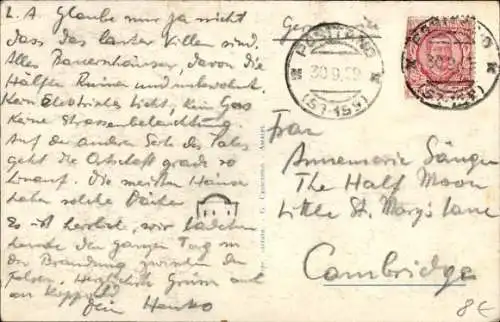 L. A. Glaube nur ja nicht
dass das lauter Villen sind.
Alles Bauernhäuser, davon die
Hälfte Ruinen und unbewohnt.
Kein elektrisches Licht, kein Gas
keine Strassenbeleuchtung.
Auf der anderen Seite des Tales
geht die Ortschaft grade so
hinauf. Die meisten Häuser
haben solche Dächer
Es ist herrlich, wir
den ganzen Tag in
der Brandung zwischen den
Felsen. Herzliche Grüsse auch
an
Dein
POSITANO
30.9.29
(57-159)
POSITANO
30.9.29
(57-159)
Frau
Annemarie Sänger
The Half Moon
Little St. Mary's Lane
Cambridge
8€